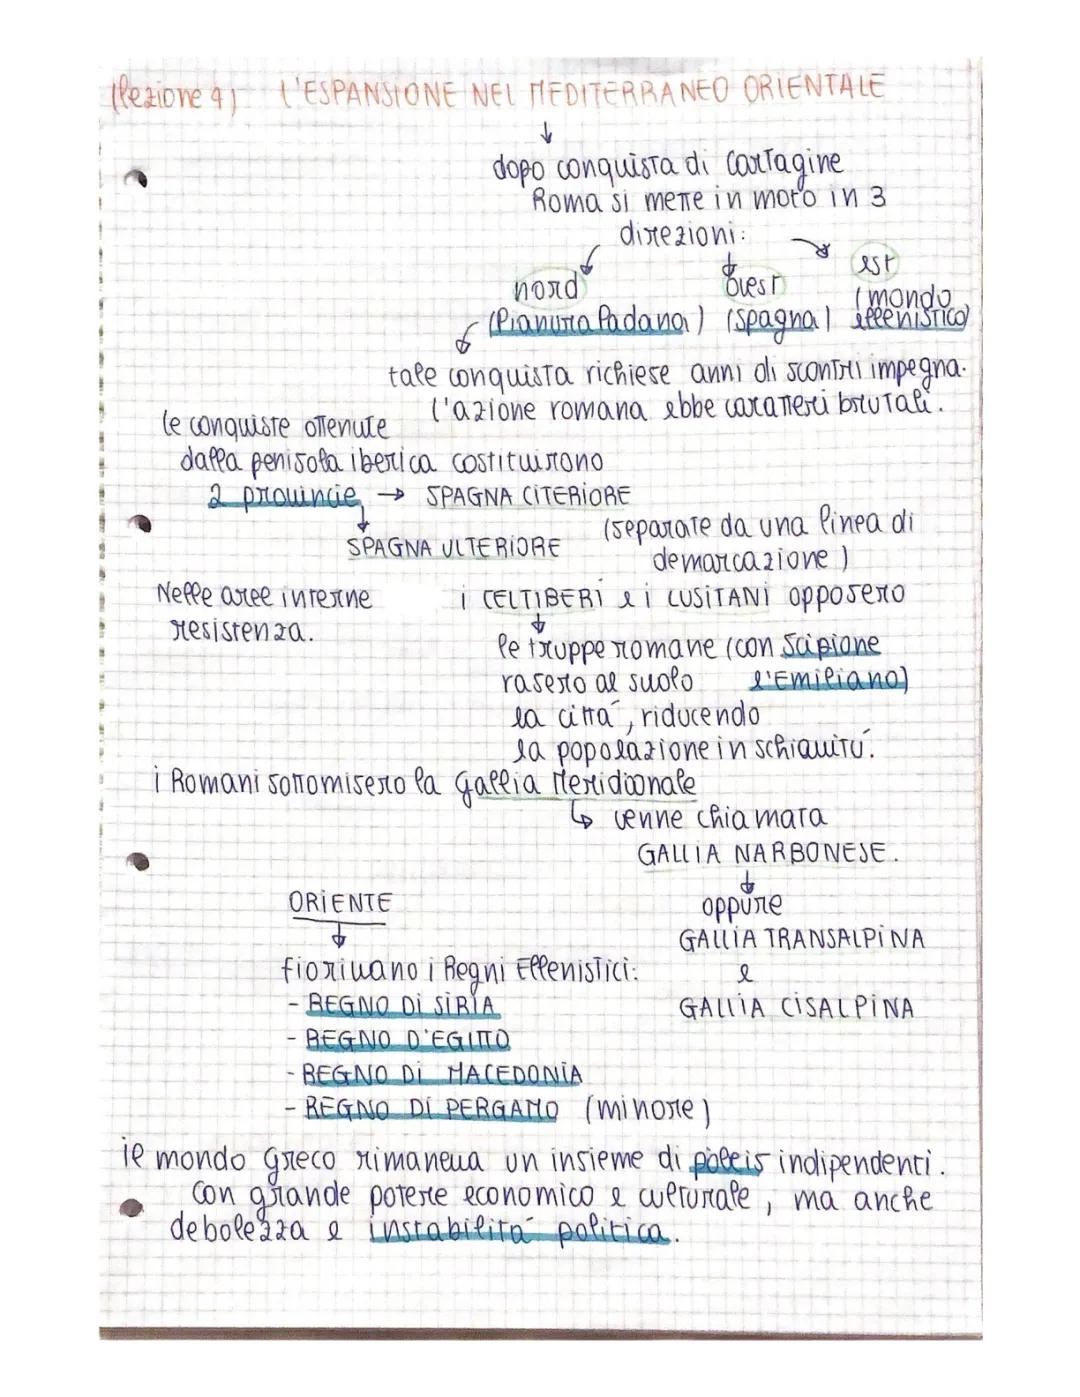 (lezione 4) L'ESPANSIONE NEL MEDITERRANEO ORIENTALE
↓
dopo conquista di Cartagine
Roma si mette in moto in 3
direzioni:
nord ovest est
(Pianura Padana) (Spagna) (mondo ellenistico)
tale conquista richiese anni di scontri impegna.
L'azione romana ebbe caratteri brutali.
le conquiste ottenute
dalla penisola iberica costituirono
2 provincie → SPAGNA CITERIORE
↓
SPAGNA ULTERIORE (separate da una linea di
demarcazione)
Nelle aree interne i CELTIBERI e i LUSITANI opposero
resistenza.
↓
le truppe romane (con Scipione
rasero al suolo l'Emiliano)
la città, riducendo
la popolazione in schiavitù.
i Romani sottomisero la Gallia Meridioonale
↳ venne chiamata
GALLIA NARBONESE.
↓
oppure
GALLIA TRANSALPINA
e
GALLIA CISALPINA
ORIENTE
↓
fiorivano i Regni Ellenistici:
- REGNO DI SIRIA
- REGNO D'EGITTO
- REGNO DI MACEDONIA
- REGNO DI PERGAMO (minore)
il mondo greco rimaneva un insieme di pòleis indipendenti.
Con grande potere economico e culturale, ma anche
debolezza e instabilità politica.